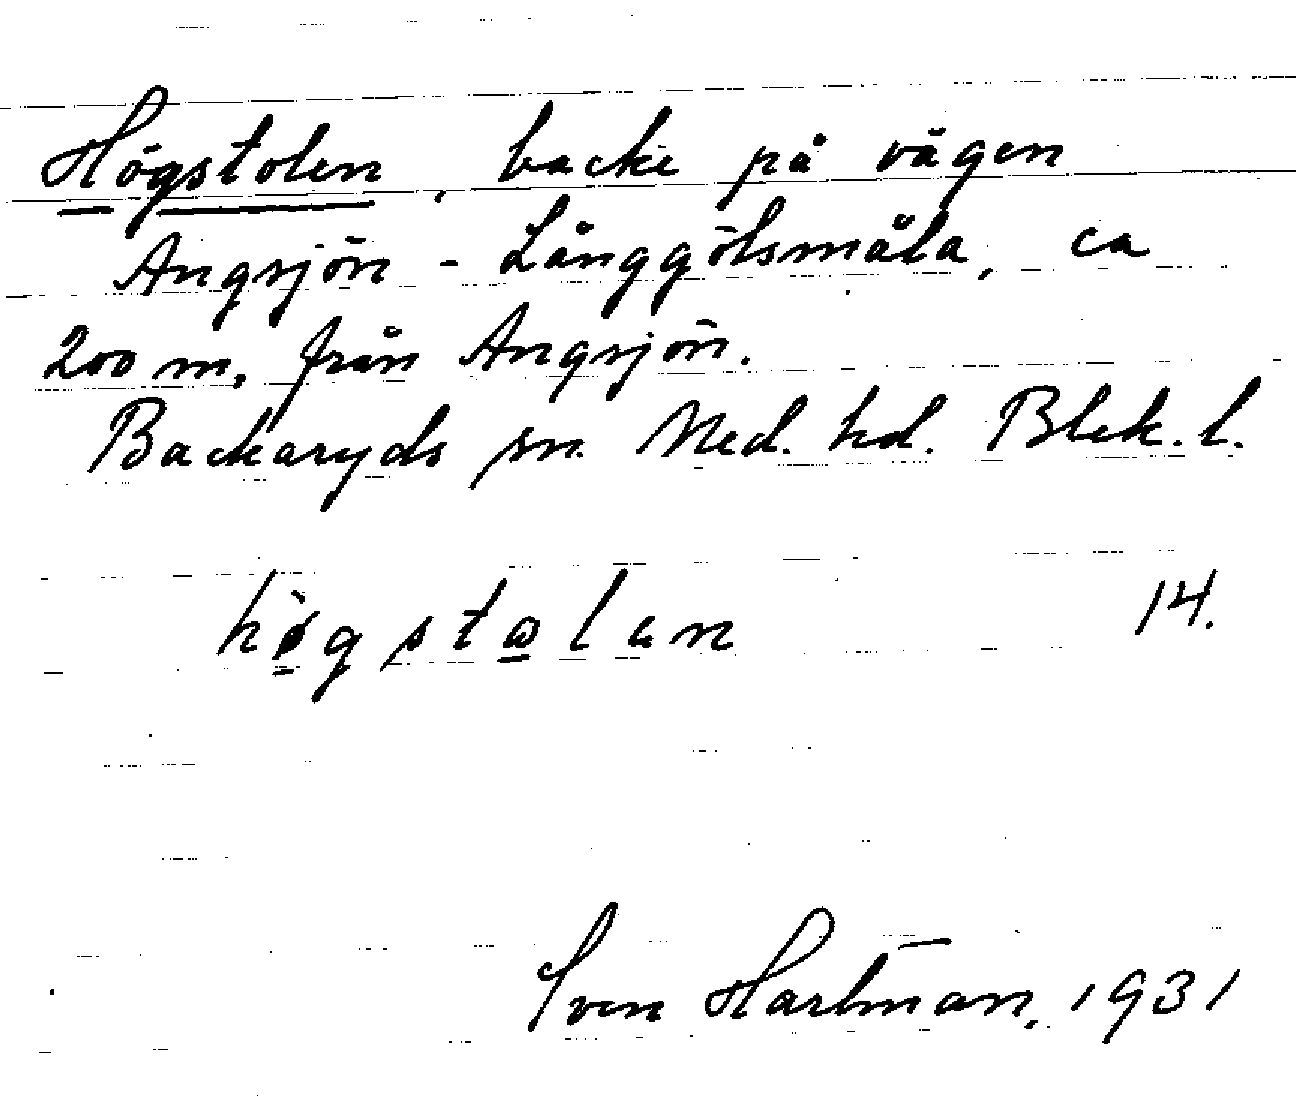 Högstolen, backe på vägen
Angsjön - Långgölsmåla, ca
200 m. från Angsjön.
Backaryds sn. Med. hd. Blek. l.
högstolen 14.
Sven Hartman, 1931